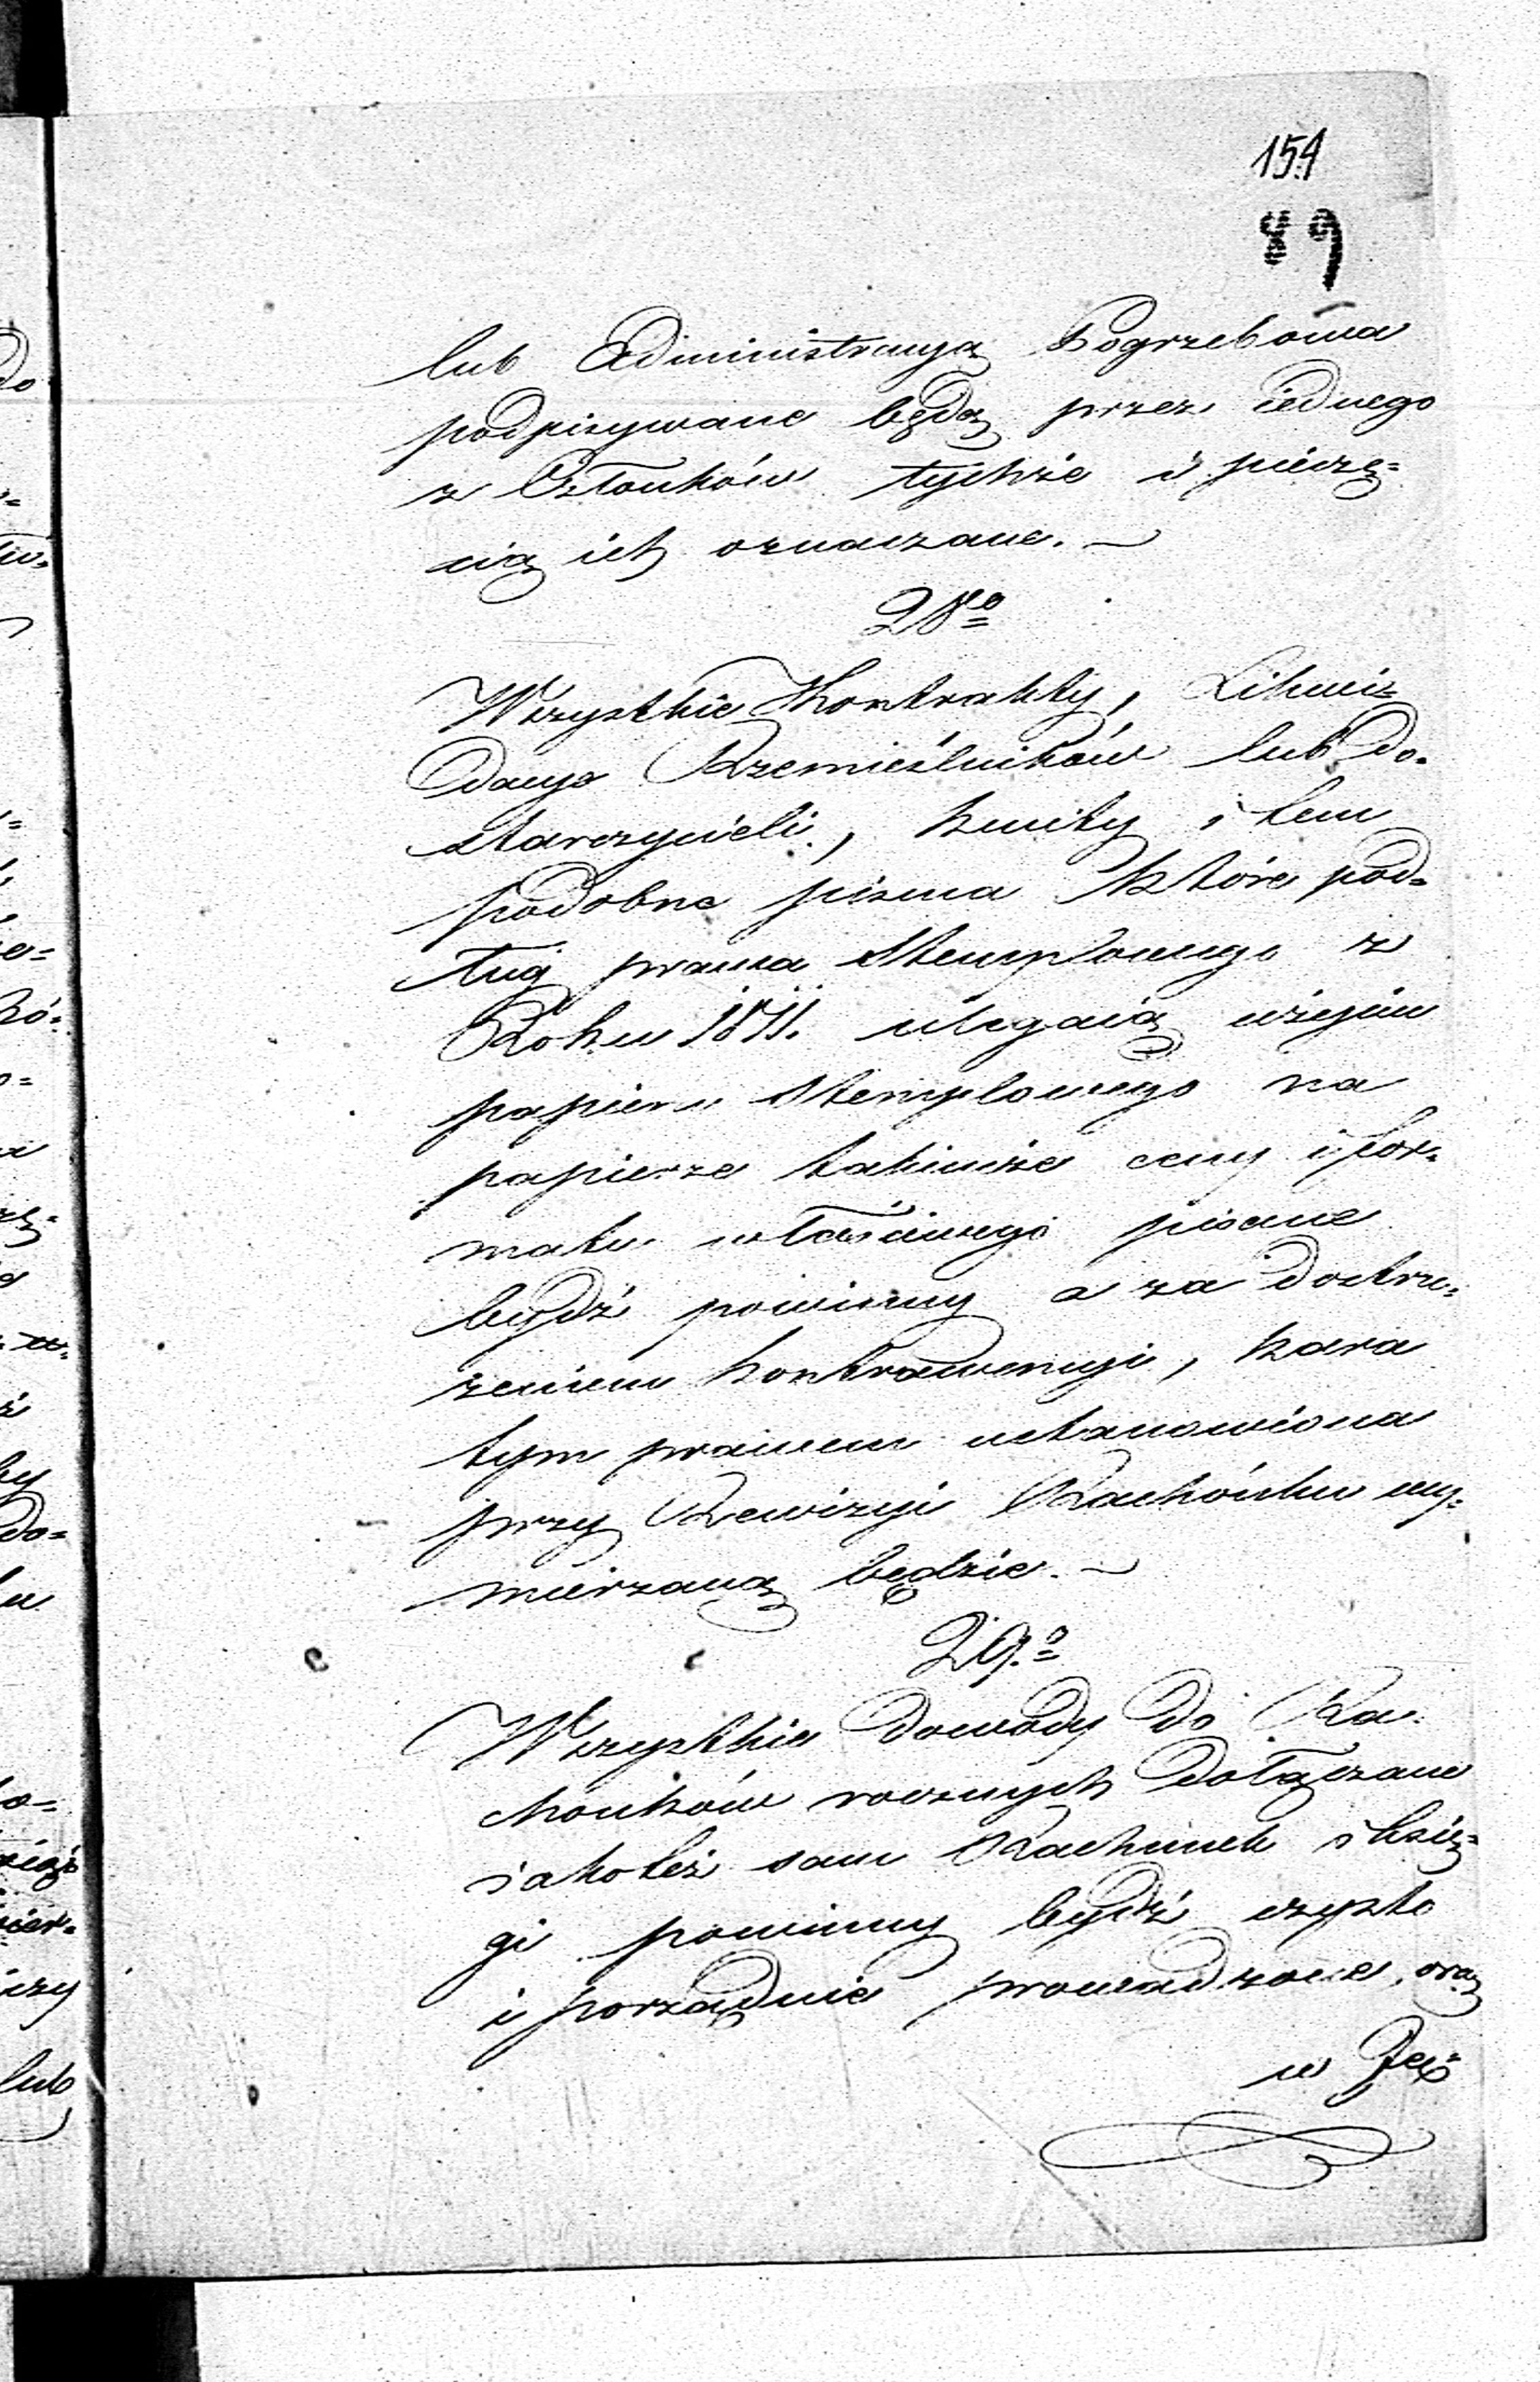 154
89
lub Administracya Pogrzebowa
podpisywane będą przez iednego
z Członków tychże i pieczę=
cią ich oznaczane. ~
28o
Wszystkie Kontrakty, Likwi=
dacye Rzemieślników lub do=
starczycieli, kwity i tem
podobne pisma które pod=
ług prawa Stemplowego z
Roku 1811. ulegaią użyciu
papieru Stemplowego na
papierze takimże ceny i for=
matu właściwego pisane
bydź powinny a za dostrze=
żeniem kontrawencyi, kara
tym prawem ustanowiona
przy Rewizyi Rachónku wy=
mierzaną będzie. ~
29.o
Wszystkie dowody do Ra=
chonków rocznych dołączane
iakoteż sam Rachunek i księ=
gi powinny bydź czysto
i porządnie prowadzone, oraz
w
do
lub